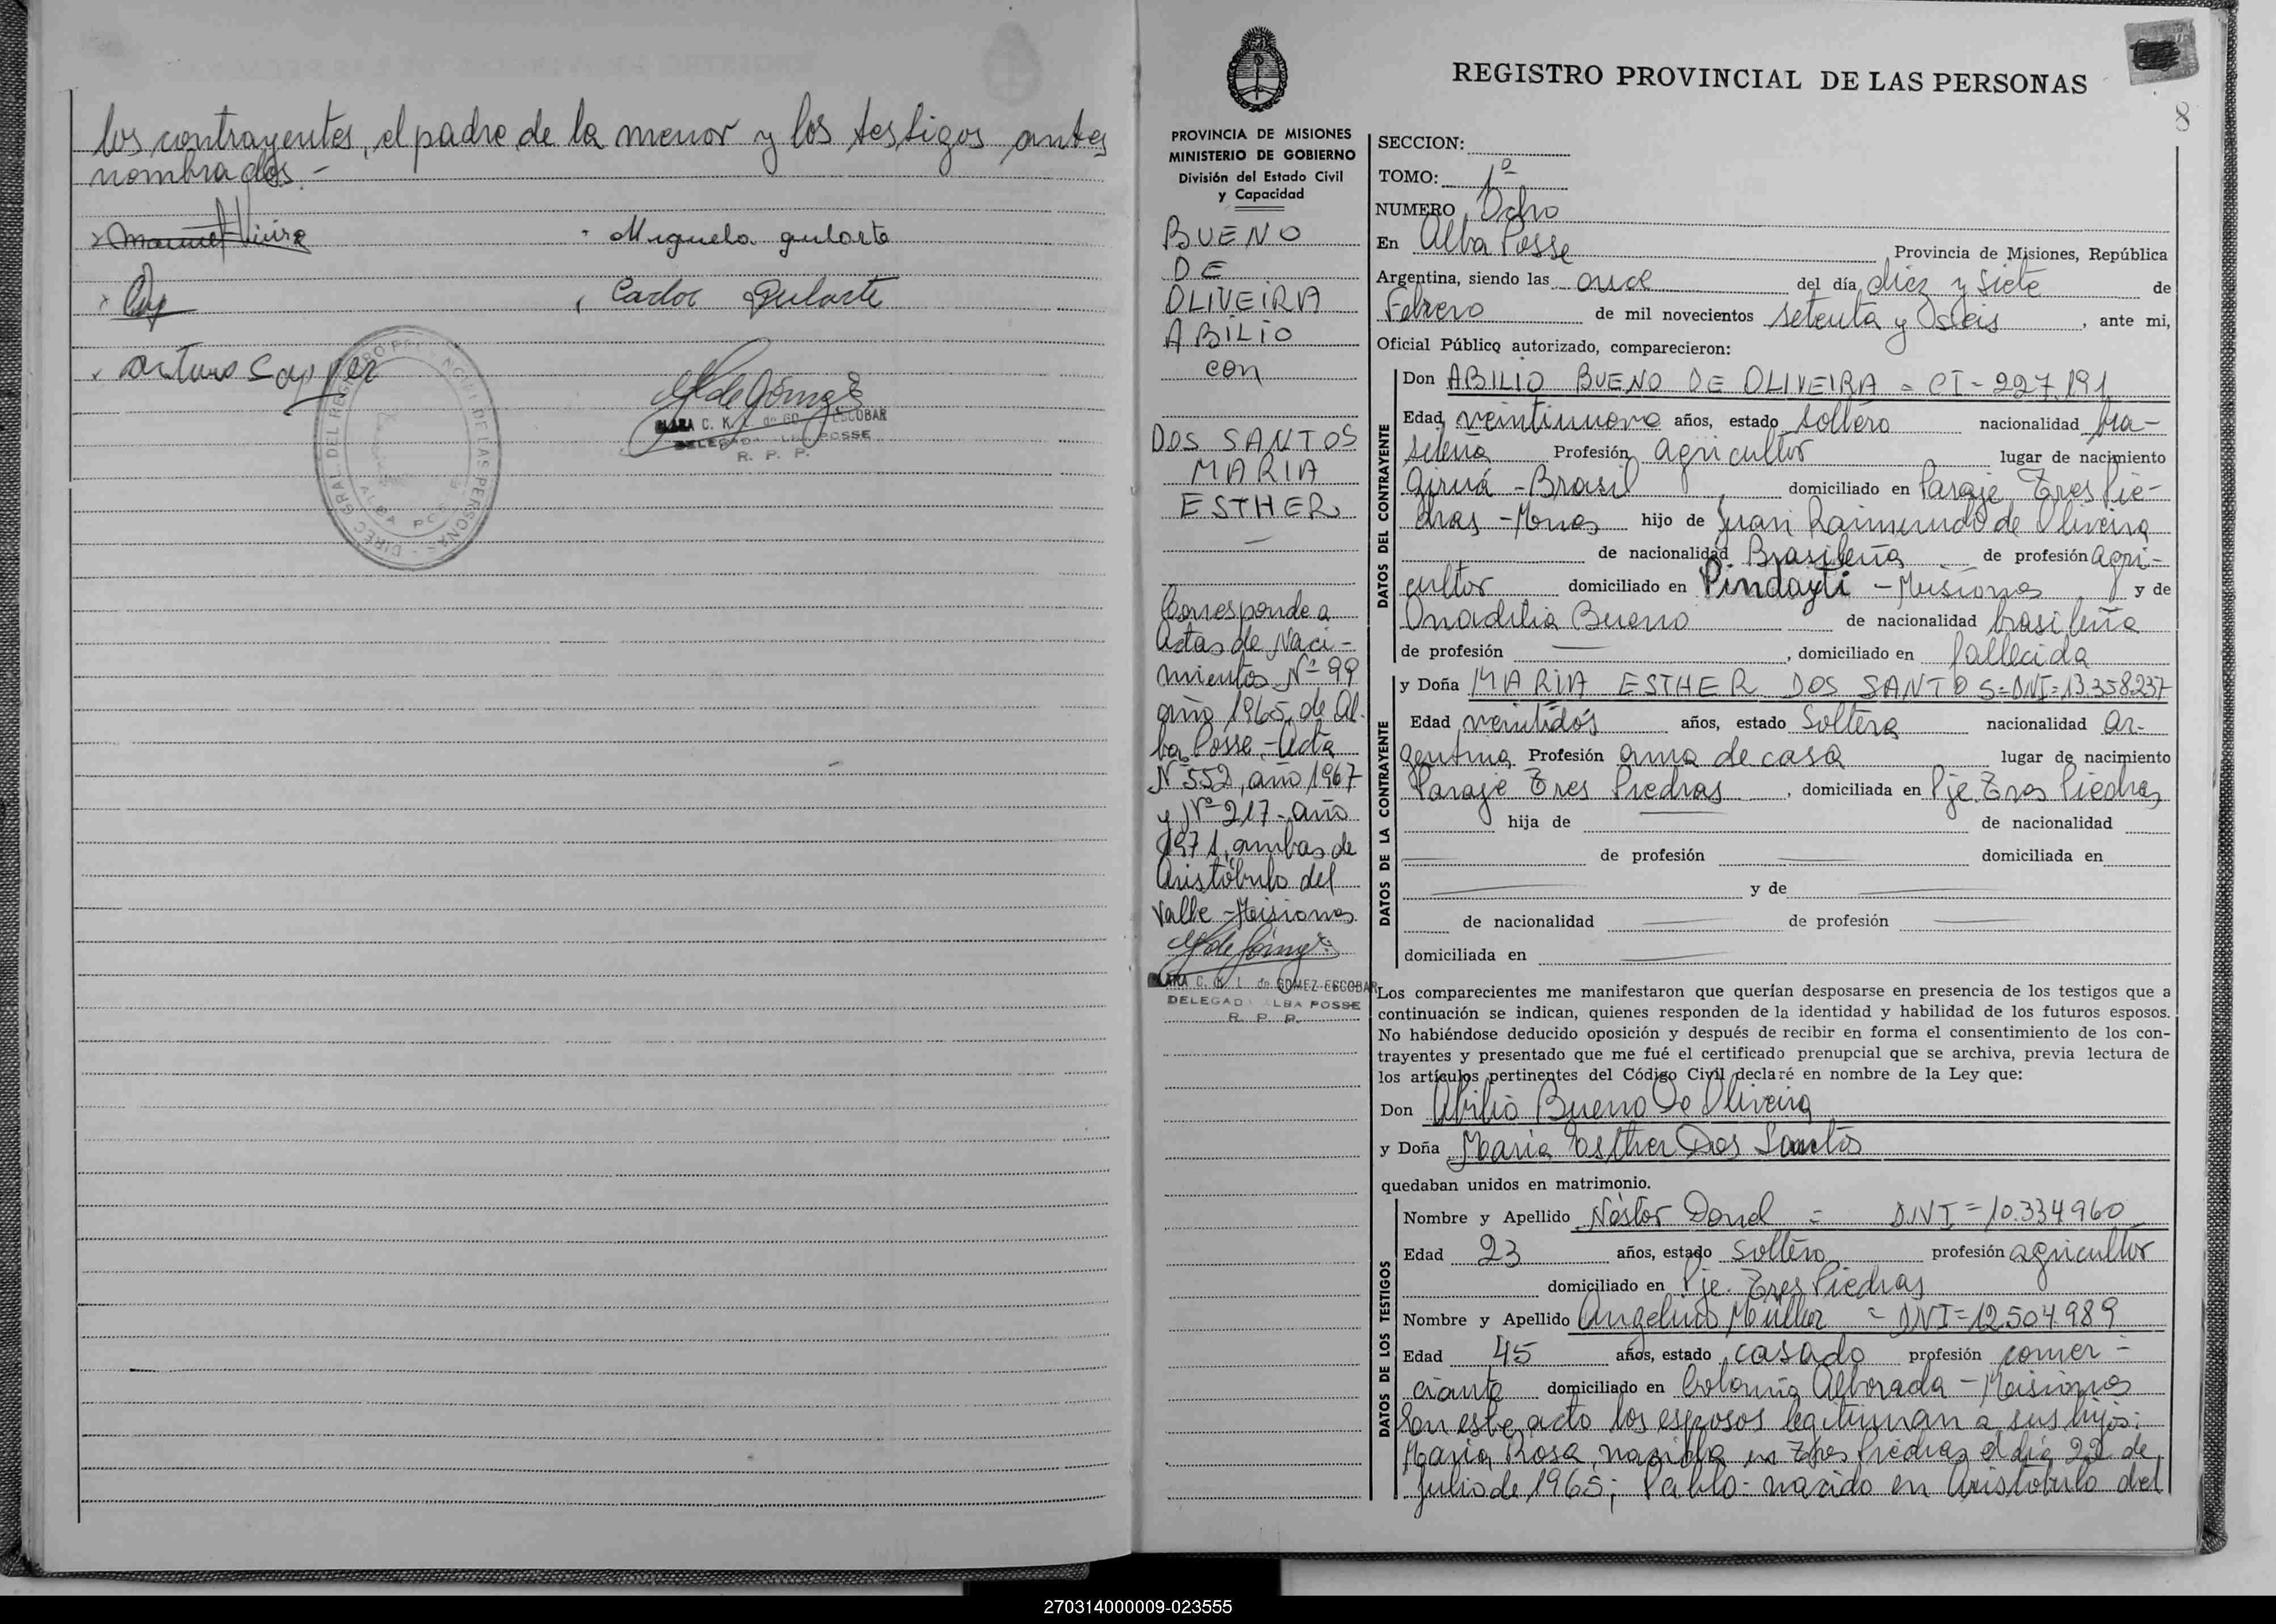 los contrayentes, el padre de la menor y los testigos antes
nombrados.-
Miguela gularte
Carlos Gularte
arturo
DELEGADA ALBA POSSE
R. P. P.
REGISTRO PROVINCIAL DE LAS PERSONAS
8
PROVINCIA DE MISIONES
MINISTERIO DE GOBIERNO
División del Estado Civil
y Capacidad
BUENO
DE
OLIVEIRA
ABILIO
con
DOS SANTOS
MARIA
ESTHER
Corresponde a
Actas de Naci-
mientos Nº 99
año 1965, de Al-
ba Posse,-Acta
Nº 552, año 1967
y Nº 217- año
1971, ambas de
Aristóbulo del
Valle -Misiones
C. K. L. de GOMEZ ESCOBAR
DELEGADA ALBA POSSE
R. P. P.
SECCION:
TOMO: 1º
NUMERO Ocho
En Alba Posse Provincia de Misiones, República
Argentina, siendo las once del día diez y siete de
Febrero de mil novecientos setenta y seis, ante mi,
Oficial Público autorizado, comparecieron:
DATOS DEL CONTRAYENTE
Don ABILIO BUENO DE OLIVEIRA = CI = 227.191
Edad veintinueve años, estado soltero nacionalidad bra-
sileña Profesión agricultor lugar de nacimiento
Giruá - Brasil domiciliado en Paraje Tres Pie-
dras - Mnes hijo de Juan Raimundo de Oliveira
de nacionalidad Brasileña de profesión agri-
cultor domiciliado en Pindayti - Misiones y de
Onadilia Bueno de nacionalidad brasileña
de profesión — , domiciliado en fallecida
DATOS DE LA CONTRAYENTE
y Doña MARIA ESTHER DOS SANTOS=DNI=13.358.237
Edad veintidós años, estado Soltera nacionalidad ar-
gentina Profesión ama de casa lugar de nacimiento
Paraje Tres Piedras , domiciliada en Pje. Tres Piedras
hija de de nacionalidad
de profesión domiciliada en
y de
de nacionalidad de profesión
domiciliada en
Los comparecientes me manifestaron que querían desposarse en presencia de los testigos que a
continuación se indican, quienes responden de la identidad y habilidad de los futuros esposos.
No habiéndose deducido oposición y después de recibir en forma el consentimiento de los con-
trayentes y presentado que me fué el certificado prenupcial que se archiva, previa lectura de
los artículos pertinentes del Código Civil declaré en nombre de la Ley que:
Don Abilio Bueno De Oliveira
y Doña Maria Esther Dos Santos
quedaban unidos en matrimonio.
DATOS DE LOS TESTIGOS
Nombre y Apellido Néstor Donel = DNI=10.334960
Edad 23 años, estado soltero profesión agricultor
domiciliado en Pje. Tres Piedras
Nombre y Apellido Angelino Müller = DNI=12.504.989
Edad 45 años, estado casado profesión comer-
ciante domiciliado en Colonia Alborada - Misiones
En este acto los esposos legitiman a sus hijos:
Maria Rosa, nacida en Tres Piedras el día 22 de
Julio de 1965; Pablo: nacido en Aristóbulo del
270314000009-023555